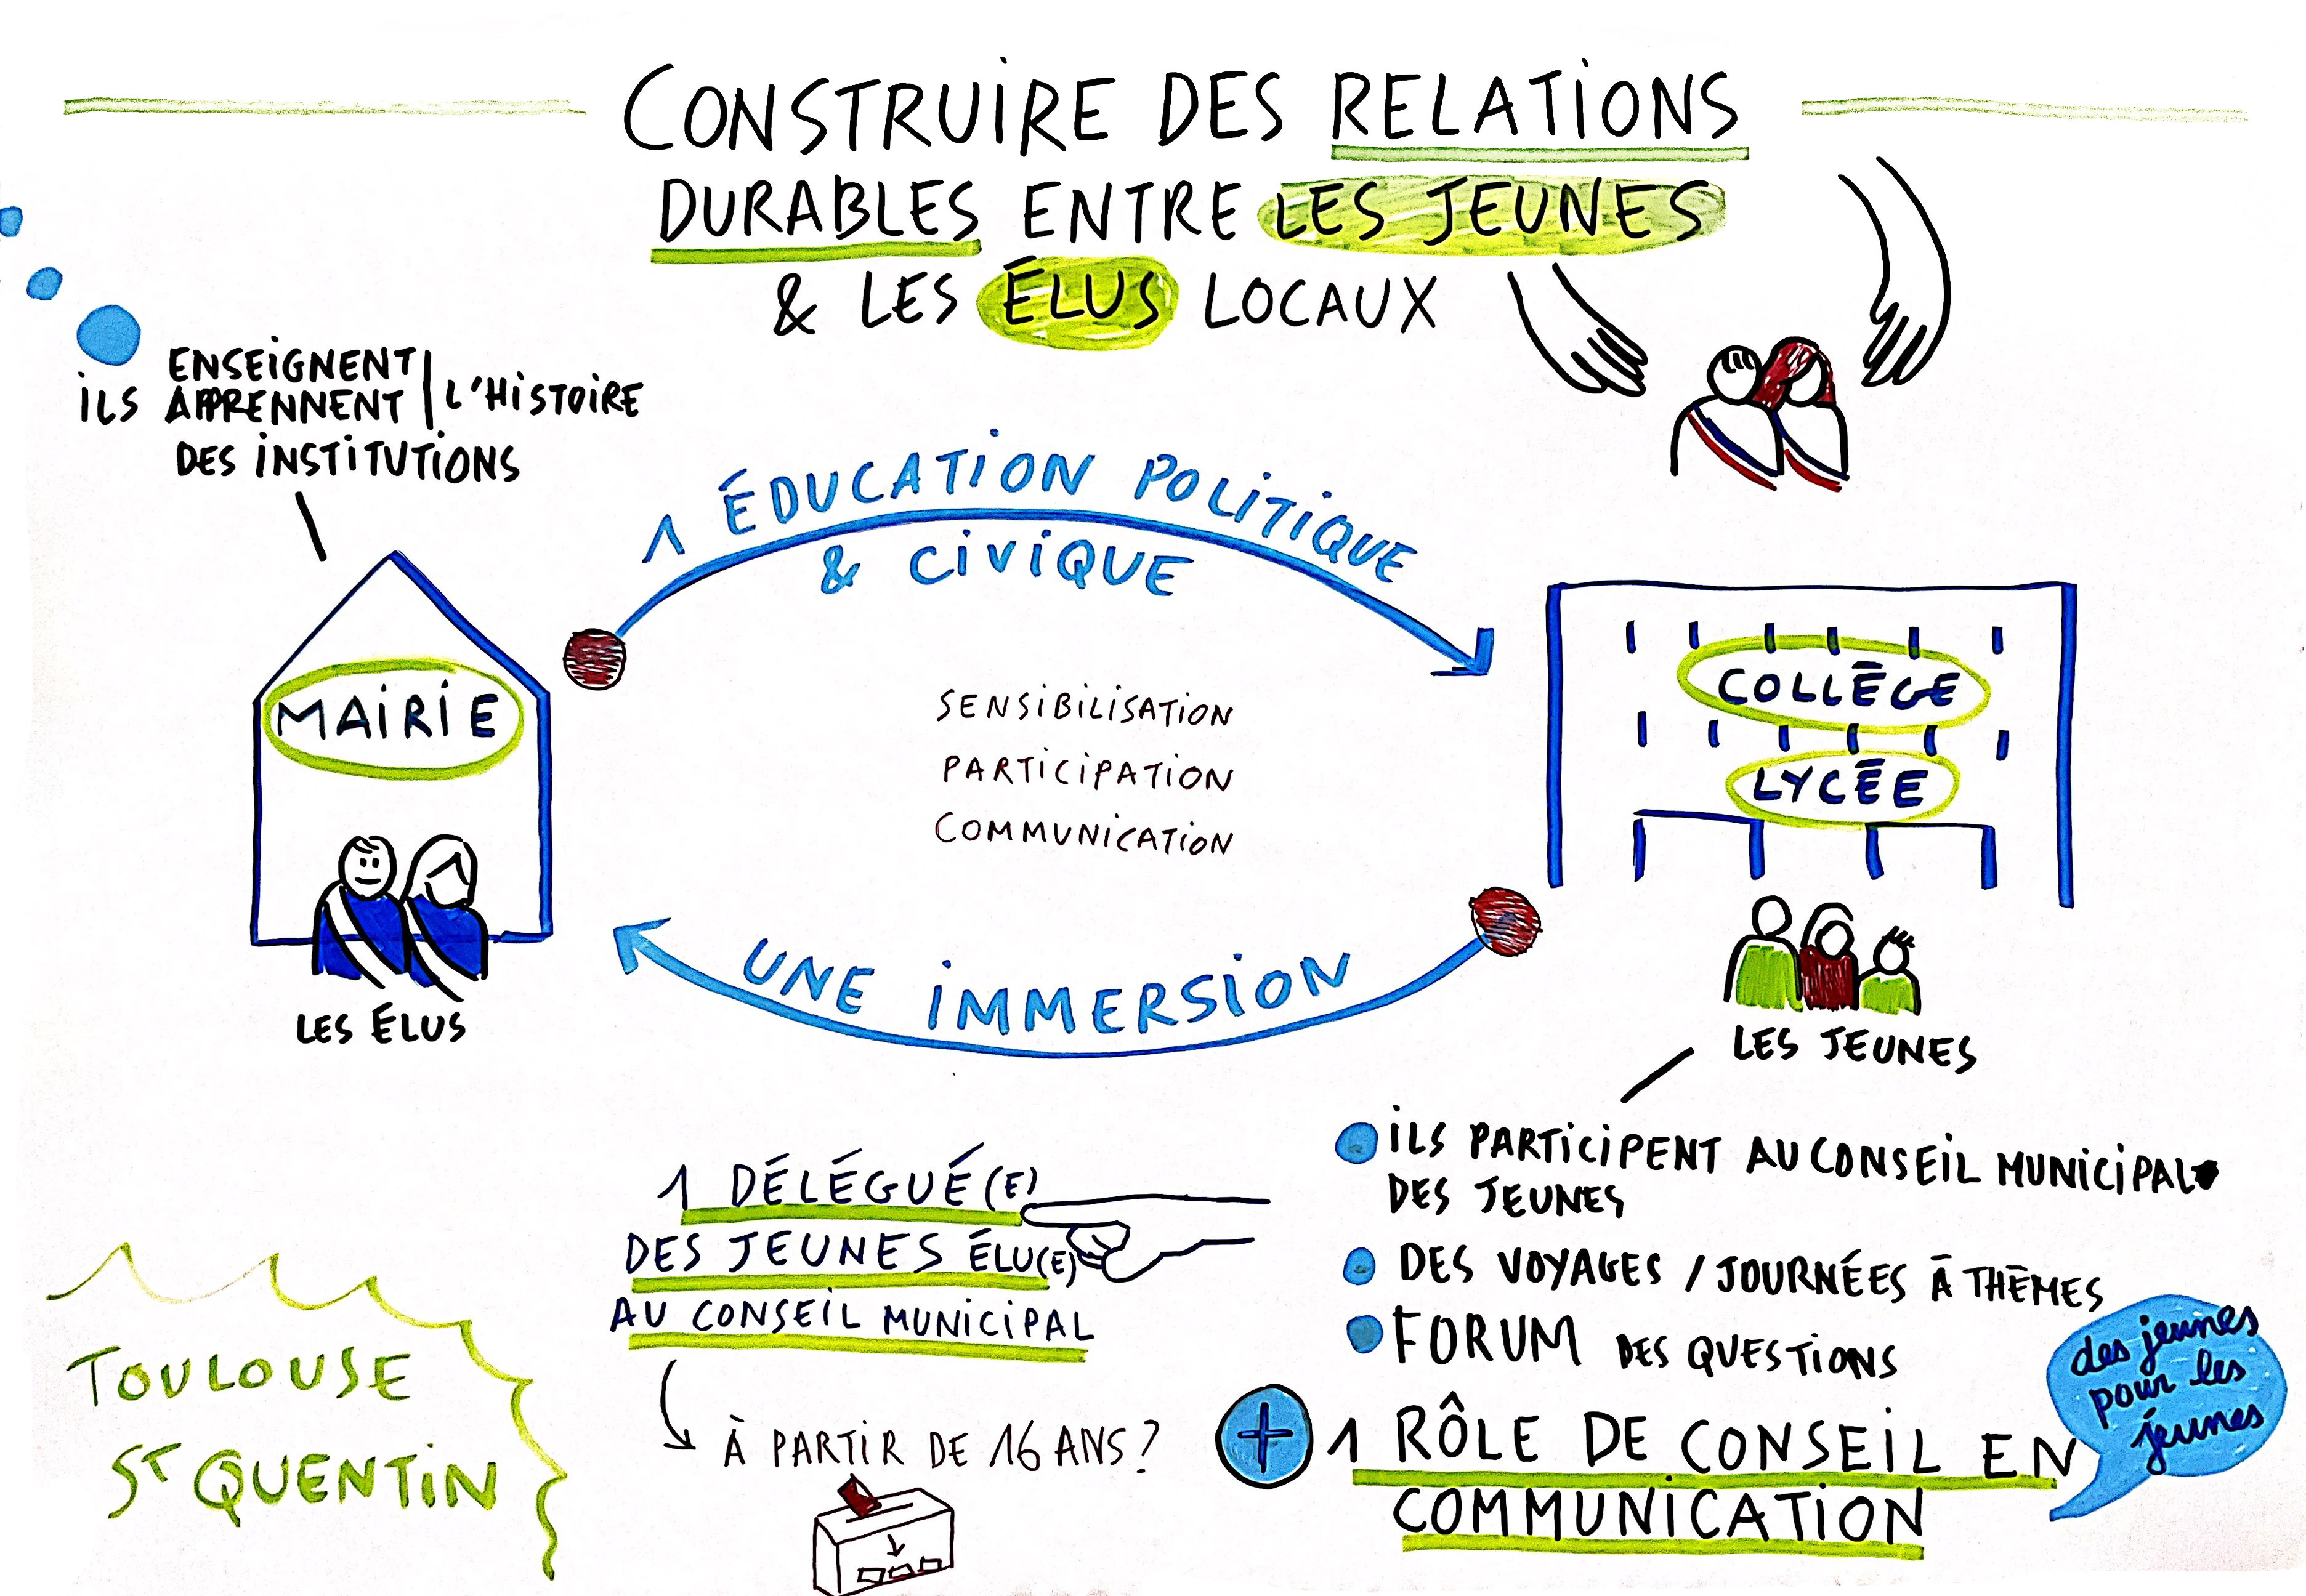 CONSTRUIRE DES RELATIONS
DURABLES ENTRE LES JEUNES
& LES ÉLUS LOCAUX
ENSEIGNENT
ILS APPRENNENT | L'HISTOIRE
DES INSTITUTIONS
1 ÉDUCATION POLITIQUE
& CIVIQUE
MAIRIE
LES ÉLUS
SENSIBILISATION
PARTICIPATION
COMMUNICATION
COLLÈGE
LYCÉE
LES JEUNES
UNE IMMERSION
1 DÉLÉGUÉ(E)
DES JEUNES ÉLU(E)
AU CONSEIL MUNICIPAL
À PARTIR DE 16 ANS ?
ILS PARTICIPENT AU CONSEIL MUNICIPAL
DES JEUNES
DES VOYAGES / JOURNÉES À THÈMES
FORUM DES QUESTIONS
+ 1 RÔLE DE CONSEIL EN
COMMUNICATION
des jeunes
pour les
jeunes
TOULOUSE
ST QUENTIN